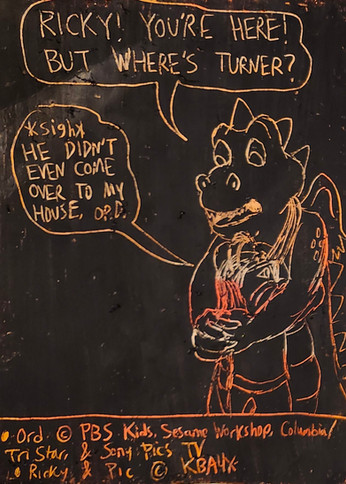 RICKY! YOU'RE HERE!
BUT WHERE'S TURNER?
*sigh*
HE DIDN'T
EVEN COME
OVER TO MY
HOUSE, ORD.
• Ord © PBS Kids, Sesame Workshop, Columbia/
Tri Star, & Sony Pics TV
• Ricky & Pic © KBAYX